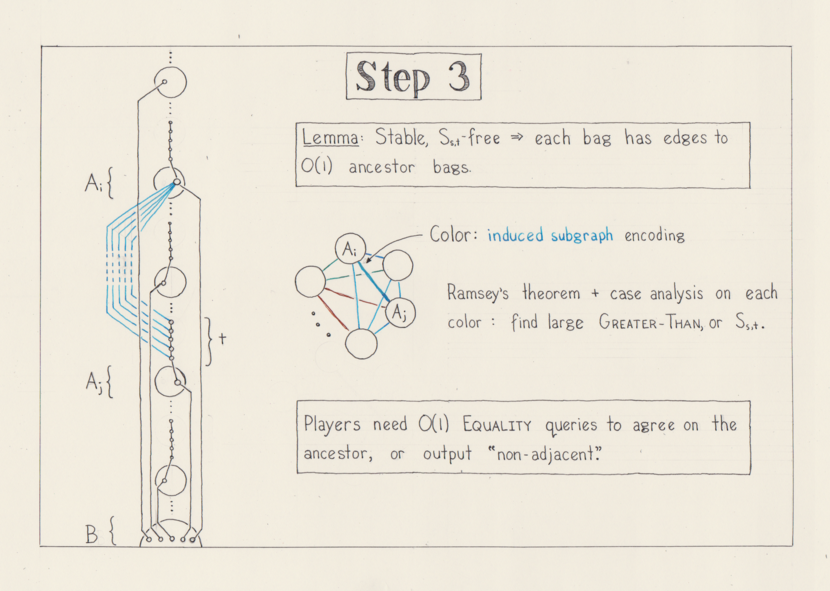 Step 3
Lemma: Stable, Sₛ,ₜ-free ⇒ each bag has edges to
O(1) ancestor bags.
Aᵢ {
Color: induced subgraph encoding
Aᵢ
Ramsey's theorem + case analysis on each
Aⱼ
color : find large GREATER-THAN, or Sₛ,ₜ.
} t
Aⱼ {
Players need O(1) EQUALITY queries to agree on the
ancestor, or output "non-adjacent."
B {